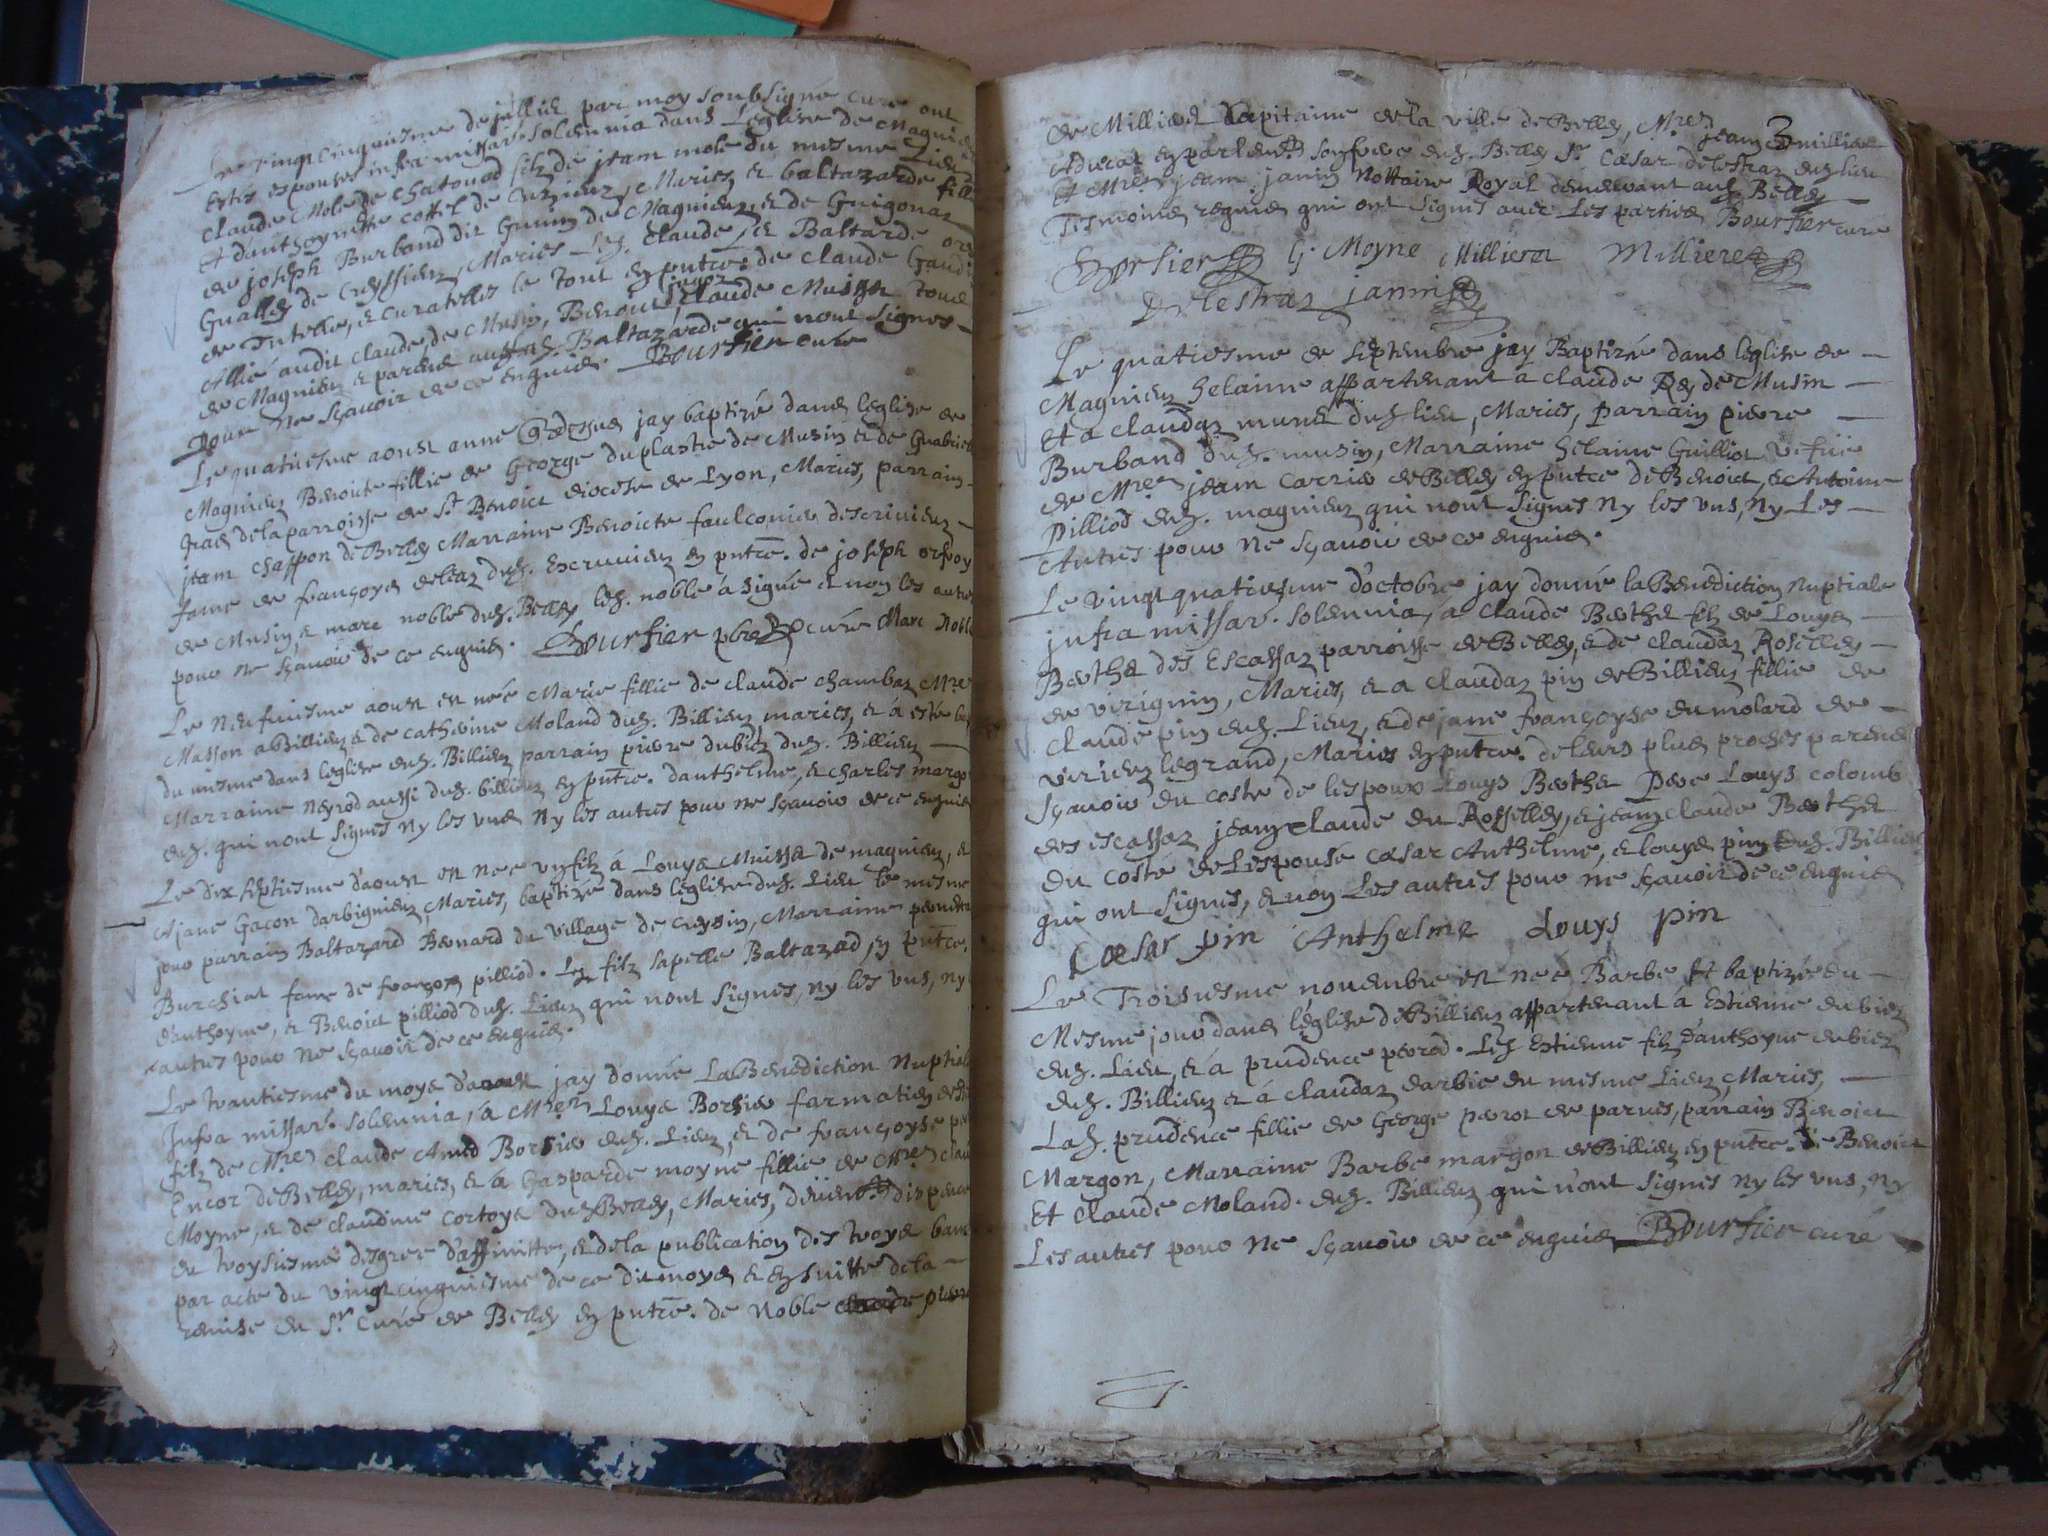 Le vingt cinquiesme de jullie par moy soubsigné curé ont
Estés espouses infra missar. solemnia dans Leglise de Magnieu
Claude Mole de Chatonod filz de jean mole du mesme Lieu
et danthoynette cottel de Cuzieuz, Mariés, et baltazarde fille
de joseph Burband dit Gunin de Magnieu, et de Guigonaz
Gualley de Creyssieu, Mariés Lesd. Claude, et Baltarde
de Tutelle, et Curatelles le tout en pntce de Claude Gaudi
Allié audit claude de Musin, Benoict, Claude Muissa tous
de Magnieu et parens aussy a lad. Baltazarde qui nont signes
Pour ne sçavoir de ce enquis. Bourfier curé
Le quatriesme aoust anne que dessus jay baptizé dans leglise de
Magnieu Benoicte fillie de George duplastre de Musin et de Gabriel
de la parroisse de St. Benoict diocese de Lyon, Mariés, parrain
jean chappon de Belley Marraine Benoicte faulconie descrivieu
fame de françoys deltaz dud. Escrivieu en pntce. de joseph orfroy
de Musin, et marc noble dud. Belley led. noble a signé et non les autres
pour ne sçavoir de ce enquis. Bourfier pbre curé Marc Noble
Le neufuiesme aoust est née Marie fillie de claude chambaz Mre
Masson a Billieu et de catherine Moland dud. Billieu maries, et a esté bap
du mesme dans leglise dud. Billieu parrain pierre dubiez dud. Billieu
Marraine Neyrod aussi dud. billieu en pntce. danthelme, et charles margon
dud. qui nont signes ny les uns ny les autres pour ne sçavoir de ce enquis
Le dix septiesme daoust est nee un filz á Louys Muissa de magnieu, et
a jane Gacon darbignieu, Mariés, baptizé dans leglise dud. Lieu le mesme
jour parrain Baltazard Bernard du village de creysin, Marraine pernete
Burchiat fame de françoys pilliod. Led filz sapelle Baltazad, en pntce.
danthoyne, et Benoict pilliod dud. Lieu qui nont signes, ny les uns, ny
autres pour ne sçavoir de ce enquis.
Le trantiesme du moys daoust jay donné La Benediction Nuptiale
Infra missar. solemnia, á Mre Louys Borsie farmatien de
filz de Mre Claude Amed Borsie dud. Lieu, et de françoyse
Encor de Belley, maries, et á Gasparde moyne fillie de Mre Clau
Moyne, et de claudine Cortoys dud Belley, Mariés, dispence
du troysiesme degree d'affinitte, et de la publication des troys bans
par acte du vingt cinquiesme de ce dit moys et en suitte de la
remise du Sr. Curé de Belley en pntce. de Noble pierre
3
de Millieret Capitaine de la ville de Belley, Mre jean millieret
Advocat en parlement son frere dud. Belley Sr. Cæsar delestraz dud lieu
et Mre jean janin Nottaire Royal demeurant aud Belley
Tesmoins requis qui ont signés avec Les parties Bourfier curé
Borsier G. Moyne Millieret Millieret
Delestraz janin
Le quatriesme de septembre jay Baptizée dans leglise de
Magnieu helaine appartenant a claude Rey de Musin
Et a claudaz muret dud lieu, Mariés, parrain pierre
Burband dud. musin, Marraine helaine Guilliot vefue
de Mre jean Carrie de Belley en pntce de Benoict, et Antoine
Pilliod dud. magnieu qui nont signes ny les uns, ny Les
Autres pour ne sçavoir de ce enquis.
Le vingt quatriesme d'octobre jay donné la Benediction Nuptiale
infra missar. solemnia, a claude Berthet filz de Louys
Berthet des Escassaz parroisse de Belley, et de claudaz Roselley
de virignin, Mariés, et a claudaz pin de Billieu fillie de
Claude pin dud. Lieu, et de jane françoyse du molard de
virieu le grand, Mariés en pntce. de leurs plus proches parens
sçavoir du costé de lespoux Louys Berthet Pere Louys colomb
des escassaz jean claude du Rosselley, et jean claude Berthet
du costé de Lespouse Cæsar Anthelme, et louys pin dud. Billieu
qui ont signes, et non Les autres pour ne sçavoir de ce enquis
Cæsar pin Anthelme Louys Pin
Le Troisiesme novembre est née Barbe et baptizée du
Mesme jour dans l'église de Billieu appartenant á Estienne dubiez
dud. Lieu, et á prudence perrod. Led Estienne filz d'anthoyne dubiez
dud. Billieu et á claudaz darbie du mesme Lieu, Mariés,
Lad. prudence fillie de George perrot de parves, parrain Benoict
Margon, Marraine Barbe margon de Billieu en pntce. de Benoict
Et Claude Moland. dud. Billieu qui n'ont signes ny les uns, ny
Les autres pour ne sçavoir de ce enquis Bourfier curé